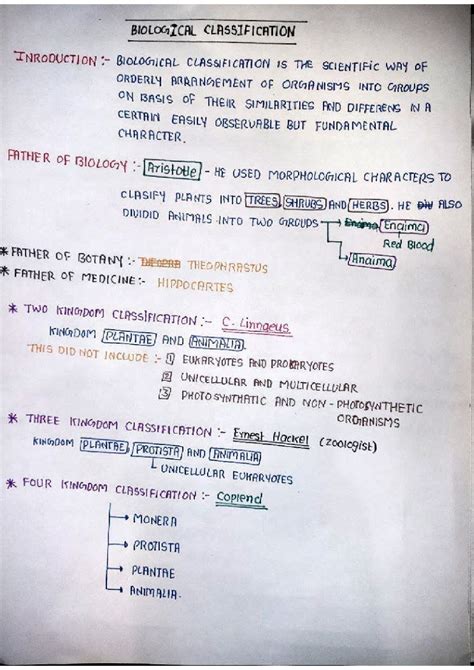 BIOLOGICAL CLASSIFICATION
INRODUCTION :- BIOLOGICAL CLASSIFICATION IS THE SCIENTIFIC WAY OF
ORDERLY ARRANGEMENT OF ORGANISMS INTO GROUPS
ON BASIS OF THEIR SIMILARITIES AND DIFFERENS IN A
CERTAIN EASILY OBSERVABLE BUT FUNDAMENTAL
CHARACTER.
FATHER OF BIOLOGY :- Aristotle - HE USED MORPHOLOGICAL CHARACTERS TO
CLASIFY PLANTS INTO TREES, SHRUBS AND HERBS. HE ALSO
DIVIDID ANIMALS INTO TWO GROUPS → Enaima
Red Blood
→ Anaima
* FATHER OF BOTANY :- THEOPHRASTUS
* FATHER OF MEDICINE :- HIPPOCARTES
* TWO KINGDOM CLASSIFICATION :- C. Linngeus
KINGDOM PLANTAE AND ANIMALIA.
THIS DID NOT INCLUDE :- 1 EUKARYOTES AND PROKARYOTES
2 UNICELLULAR AND MULTICELLULAR
3 PHOTOSYNTHATIC AND NON - PHOTOSYNTHETIC
ORGANISMS
* THREE KINGDOM CLASSIFICATION :- Ernest Hackel (zoologist)
KINGDOM PLANTAE, PROTISTA AND ANIMALIA
UNICELLULAR EUKARYOTES
* FOUR KINGDOM CLASSIFICATION :- Coplend
→ MONERA
→ PROTISTA
→ PLANTAE
→ ANIMALIA.